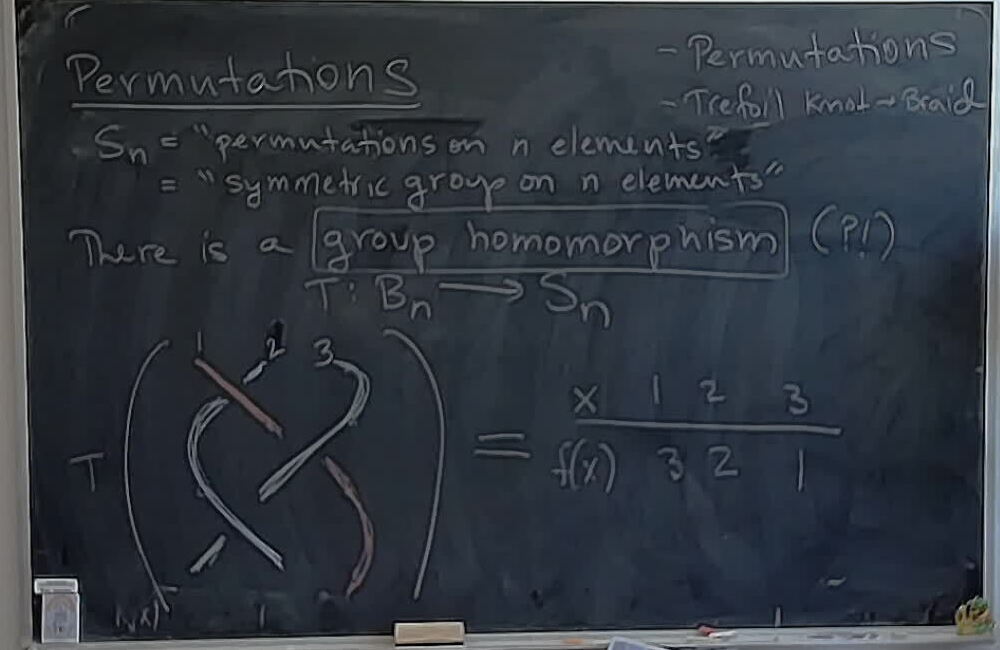 Permutations
- Permutations
- Trefoil Knot → Braid
Sn = "permutations on n elements"
= "symmetric group on n elements"
There is a group homomorphism (?!)
T: Bn → Sn
1 2 3
T
=
x 1 2 3
f(x) 3 2 1